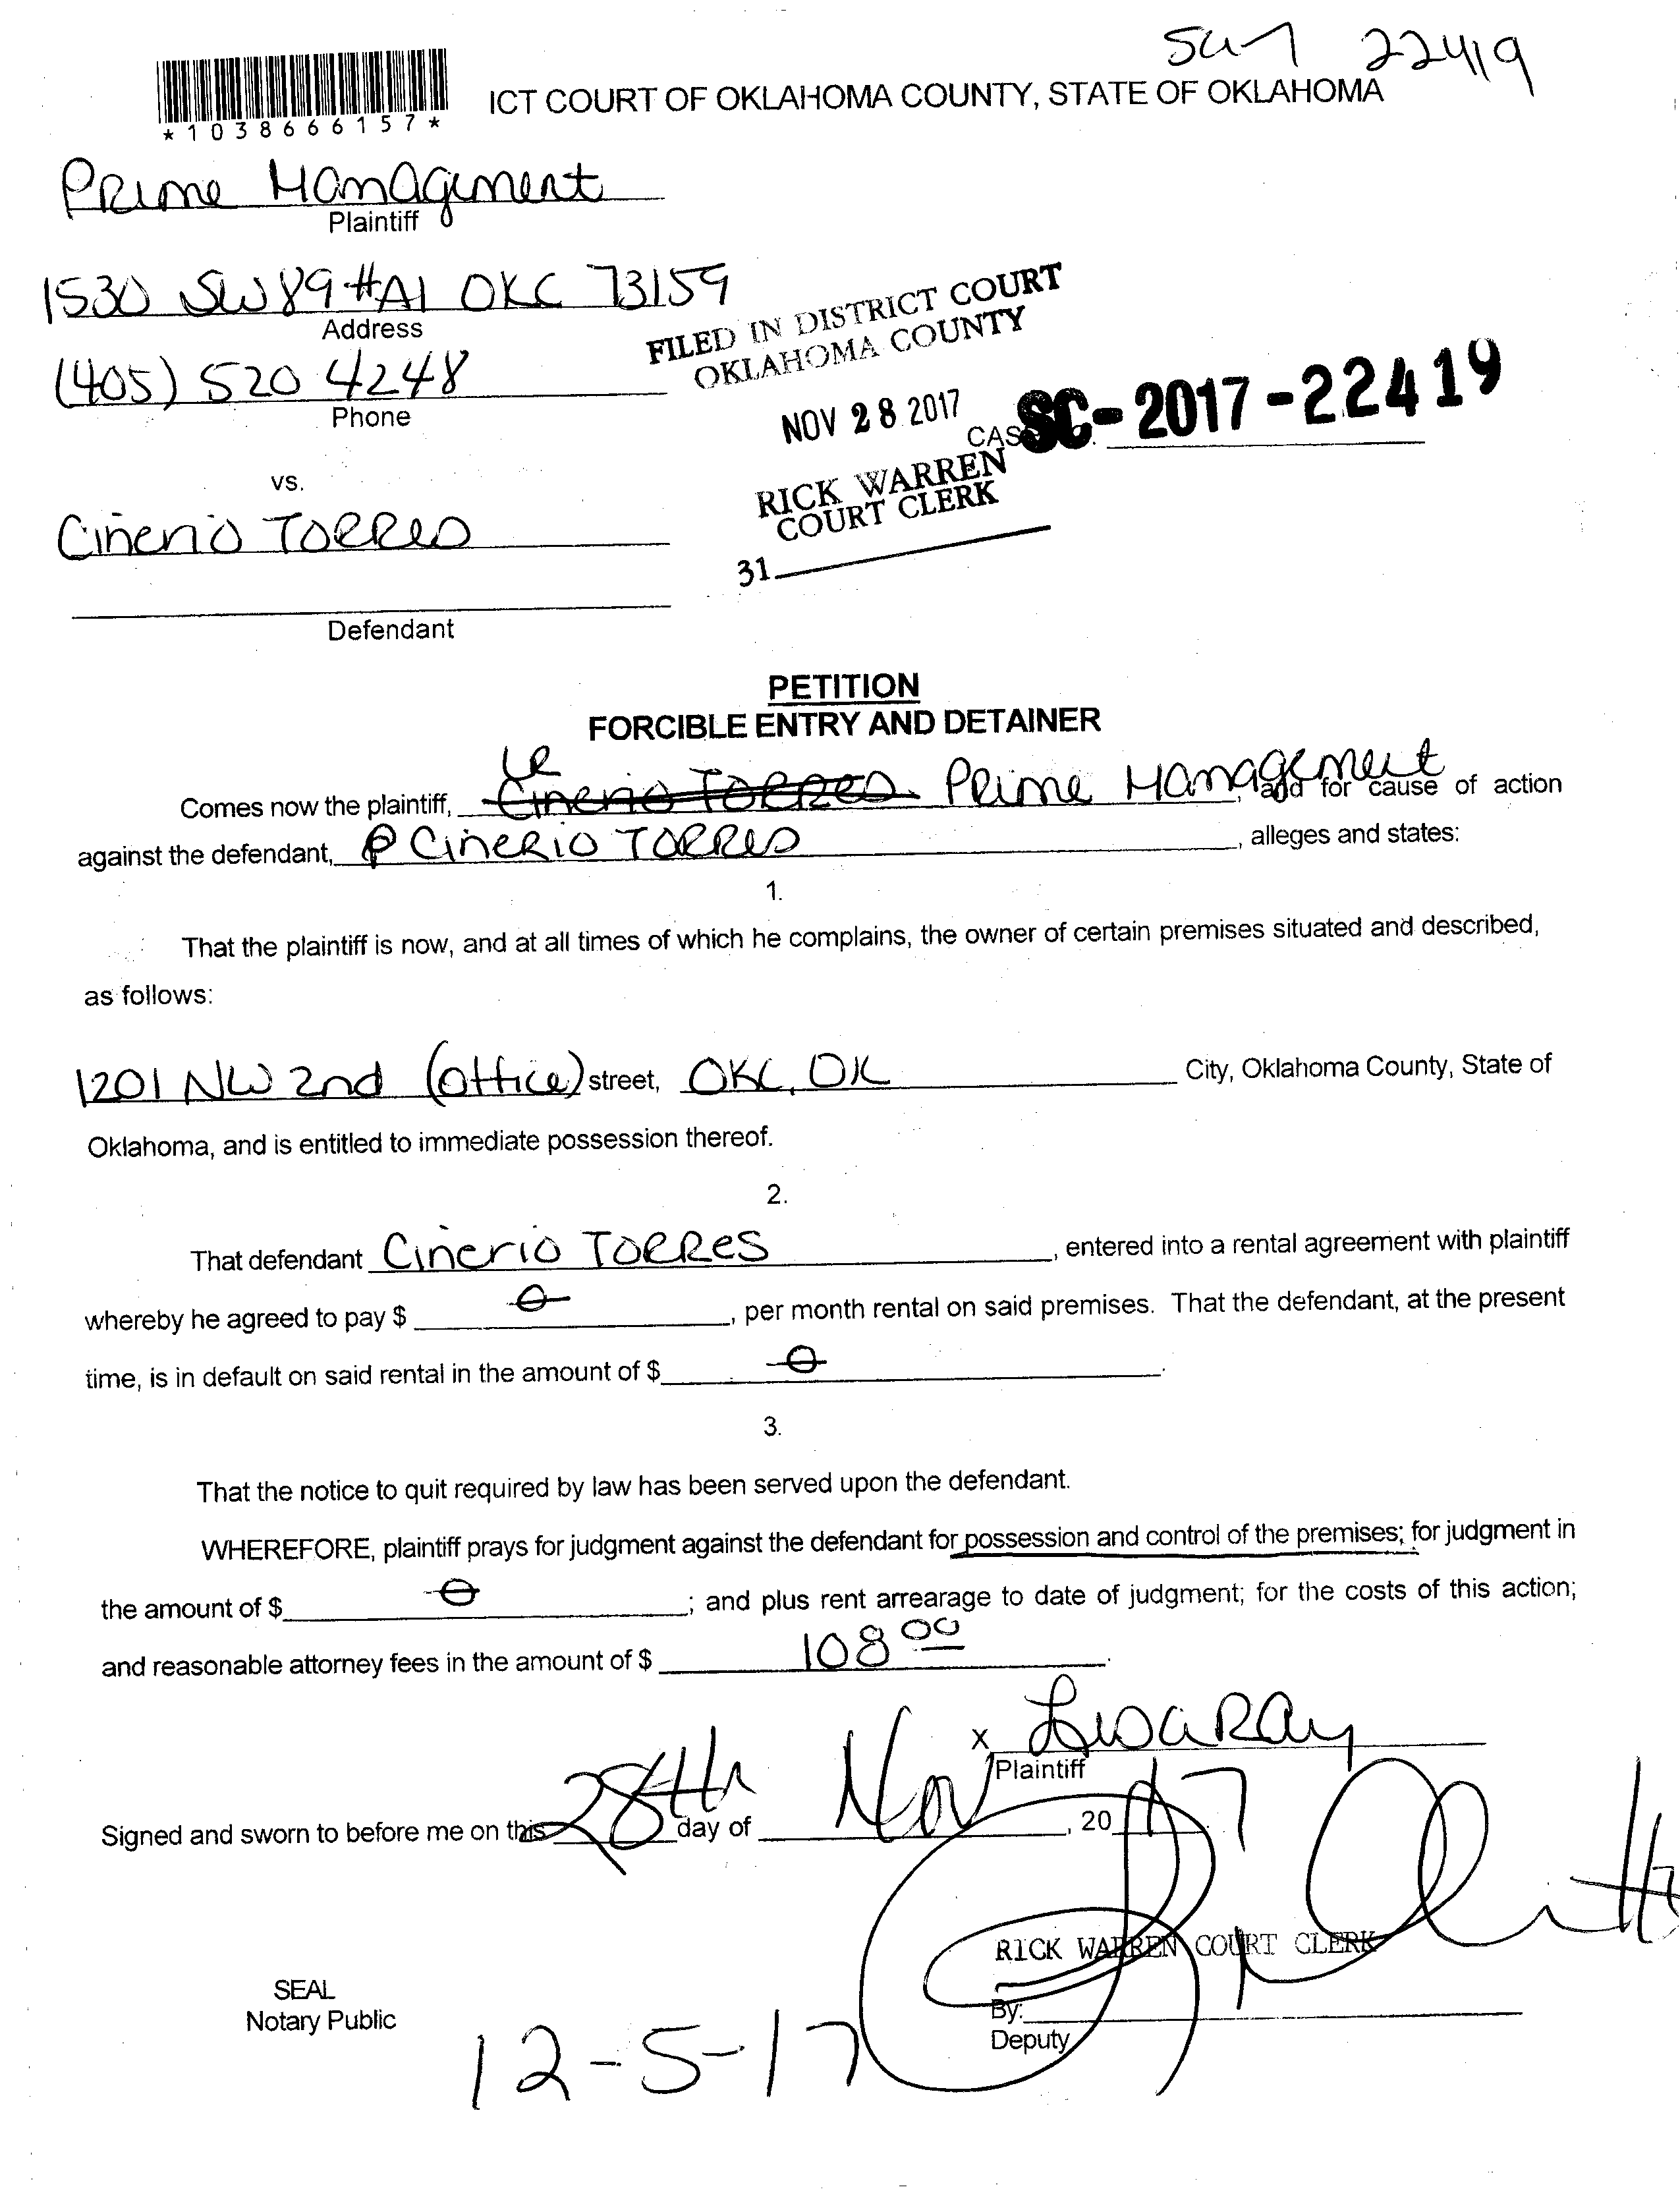 22419
*1038666157*
ICT COURT OF OKLAHOMA COUNTY, STATE OF OKLAHOMA
PRime Management
Plaintiff
1530 SW 89 #A1 OKC 73159
Address
(405) 520 4248
Phone
FILED IN DISTRICT COURT
OKLAHOMA COUNTY
NOV 28 2017
CAS SC-2017-22419
RICK WARREN
COURT CLERK
31
vs.
Cinerio TORRes
Defendant
PETITION
FORCIBLE ENTRY AND DETAINER
LR
Comes now the plaintiff, Cinerio TORRes Prime Management, and for cause of action
against the defendant, CineRio TORRes, alleges and states:
1.
That the plaintiff is now, and at all times of which he complains, the owner of certain premises situated and described,
as follows:
1201 NW 2nd (office) street, OKC, OK City, Oklahoma County, State of
Oklahoma, and is entitled to immediate possession thereof.
2.
That defendant Cinerio TORRes, entered into a rental agreement with plaintiff
whereby he agreed to pay $ 0, per month rental on said premises. That the defendant, at the present
time, is in default on said rental in the amount of $ 0.
3.
That the notice to quit required by law has been served upon the defendant.
WHEREFORE, plaintiff prays for judgment against the defendant for possession and control of the premises; for judgment in
the amount of $ 0; and plus rent arrearage to date of judgment; for the costs of this action;
and reasonable attorney fees in the amount of $ 108 00.
x Lisa Ray
Plaintiff
Signed and sworn to before me on this 28th day of Nov, 2017
RICK WARREN COURT CLERK
SEAL
Notary Public
By:
Deputy
12-5-17